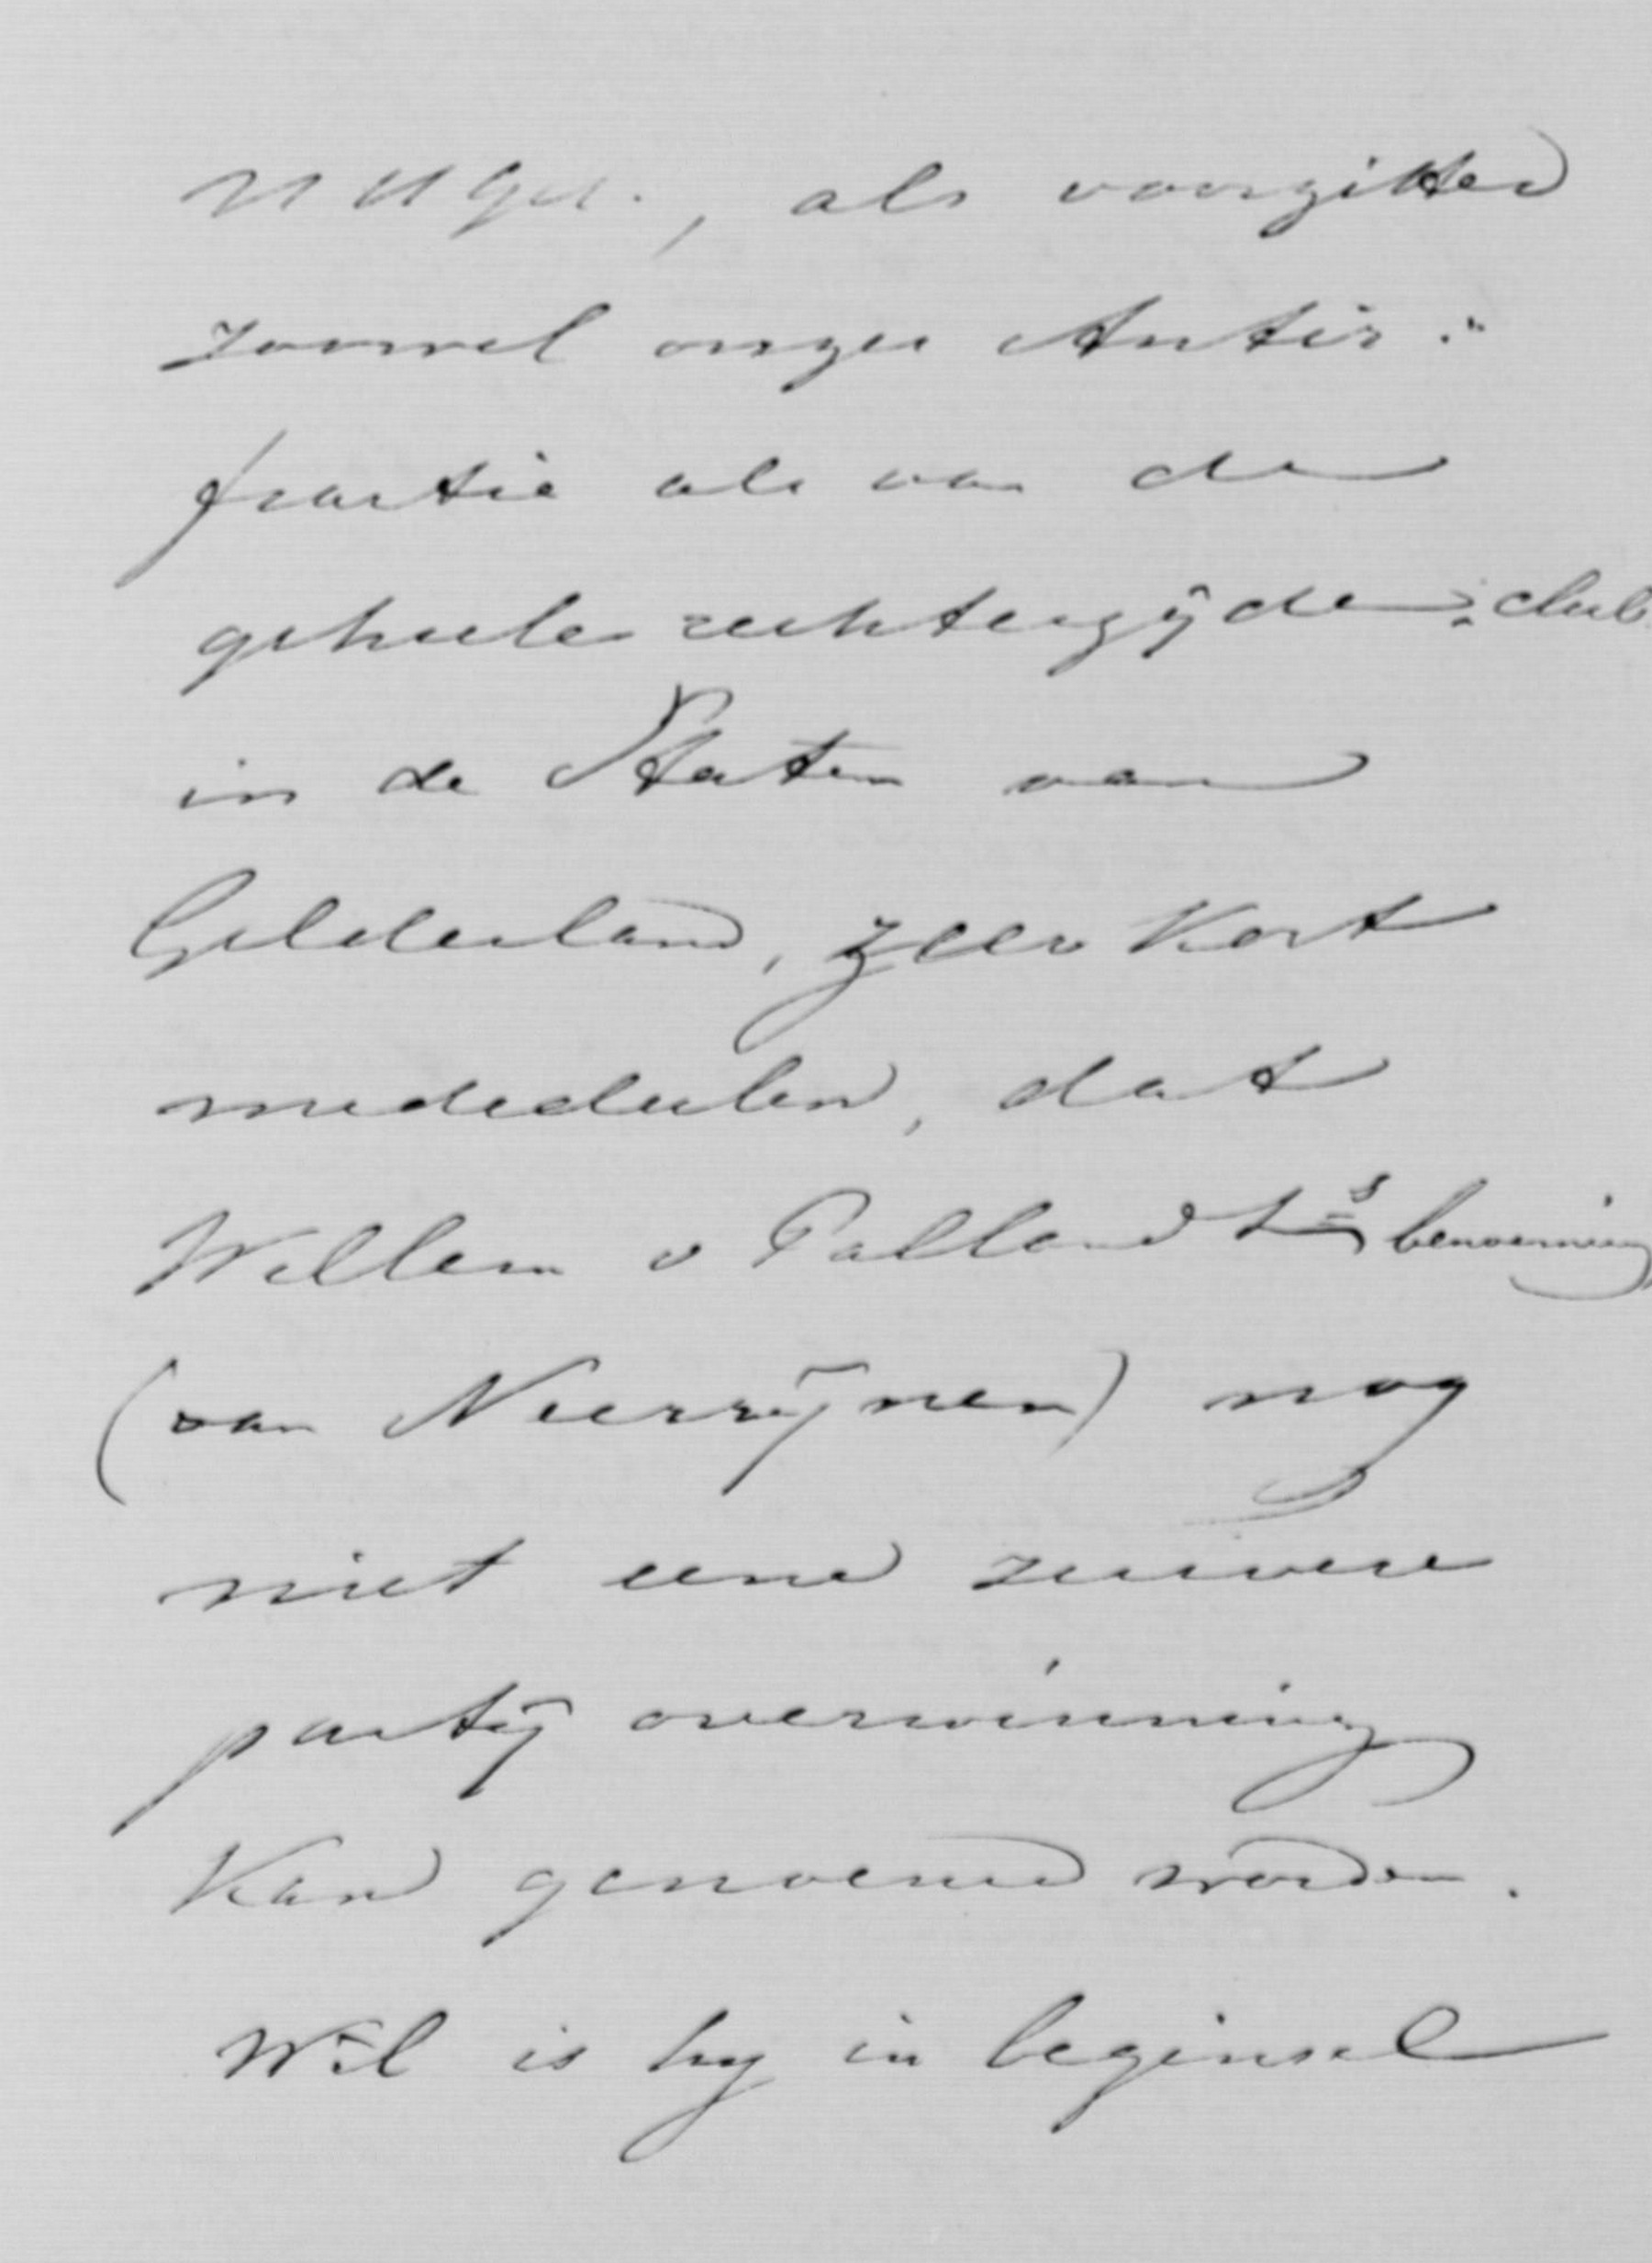 UHGel., als voorzitter
zoowel onzer Antir.
fractie als van de
geheele rechterzijde-club
in de Staten van
Gelderland, zeer kort
mededeelen, dat
Willem v Pallandts benoeming
(van Neerrijnen) nog
niet eene zuivere
partij overwinning
kan genoemd worden.
Wèl is hij in beginsel